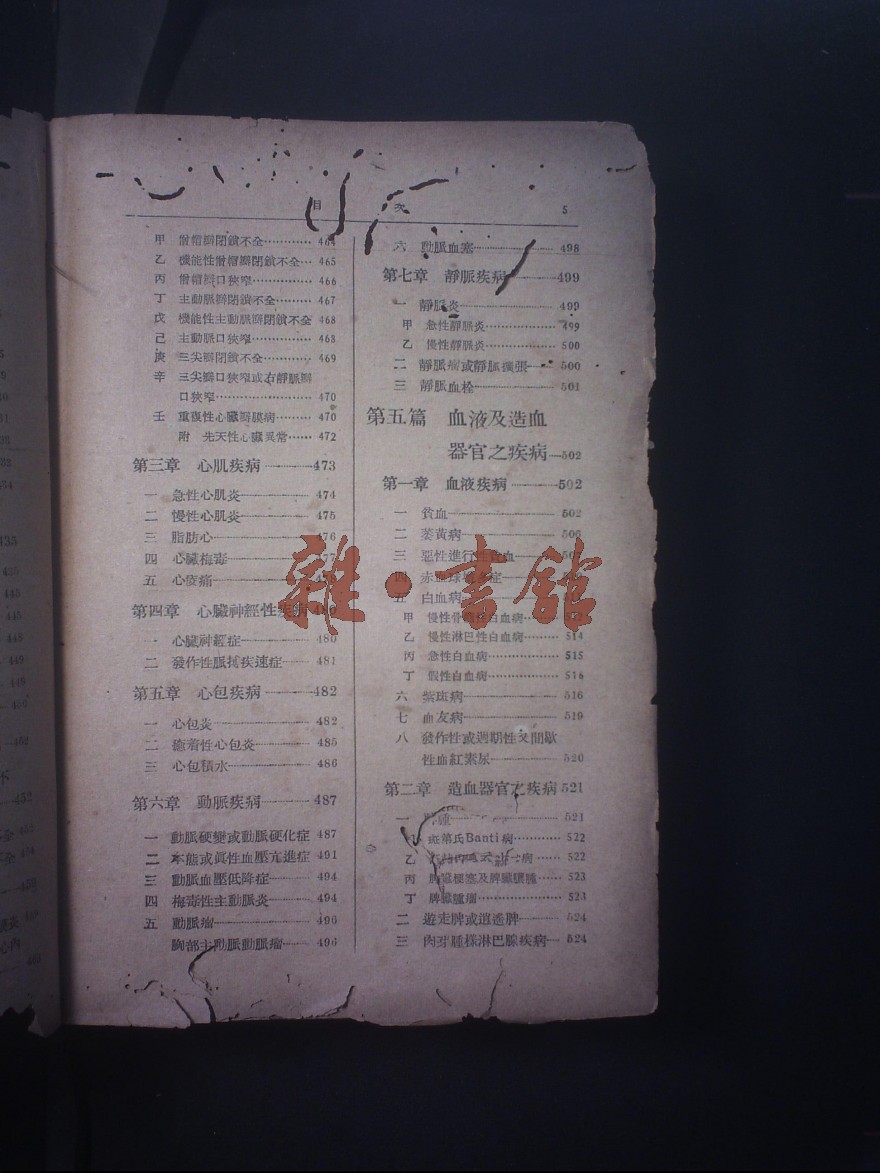 目 次 5
甲 僧帽瓣閉鎖不全
乙 機能性僧帽瓣閉鎖不全 465
丙 僧帽瓣口狹窄 466
丁 主動脈瓣閉鎖不全 467
戊 機能性主動脈瓣閉鎖不全 468
己 主動脈口狹窄 468
庚 三尖瓣閉鎖不全 469
辛 三尖瓣口狹窄或右靜脈瓣
口狹窄 470
壬 重複性心臟瓣膜病 470
附 先天性心臟異常 472
第三章 心肌疾病 473
一 急性心肌炎 474
二 慢性心肌炎 475
三 脂肪心 476
四 心臟梅毒
五 心痠痛
第四章 心臟神經性疾病
一 心臟神經症 480
二 發作性脈搏疾速症 481
第五章 心包疾病 482
一 心包炎 482
二 癒着性心包炎 485
三 心包積水 486
第六章 動脈疾病 487
一 動脈硬變或動脈硬化症 487
二 本態或眞性血壓亢進症 491
三 動脈血壓低降症 494
四 梅毒性主動脈炎 494
五 動脈瘤 496
胸部主動脈動脈瘤 496
六 動脈血塞 498
第七章 靜脈疾病 499
一 靜脈炎 499
甲 急性靜脈炎 499
乙 慢性靜脈炎 500
二 靜脈瘤或靜脈擴張 500
三 靜脈血栓 501
第五篇 血液及造血
器官之疾病 502
第一章 血液疾病 502
一 貧血 502
二 萎黃病 506
三 惡性進行性貧血
四 赤血球 症
五 白血病
甲 慢性骨髓性白血病
乙 慢性淋巴性白血病 514
丙 急性白血病 515
丁 假性白血病
六 紫斑病 516
七 血友病 519
八 發作性或週期性又間歇
性血紅素尿 520
第二章 造血器官之疾病 521
一 脾腫 521
斑第氏Banti病 522
乙 病 522
丙 脾臟梗塞及脾臟膿腫 523
丁 脾臟腫瘤 523
二 遊走脾或逍遙脾 524
三 肉芽腫樣淋巴腺疾病 524
1
雜·書館